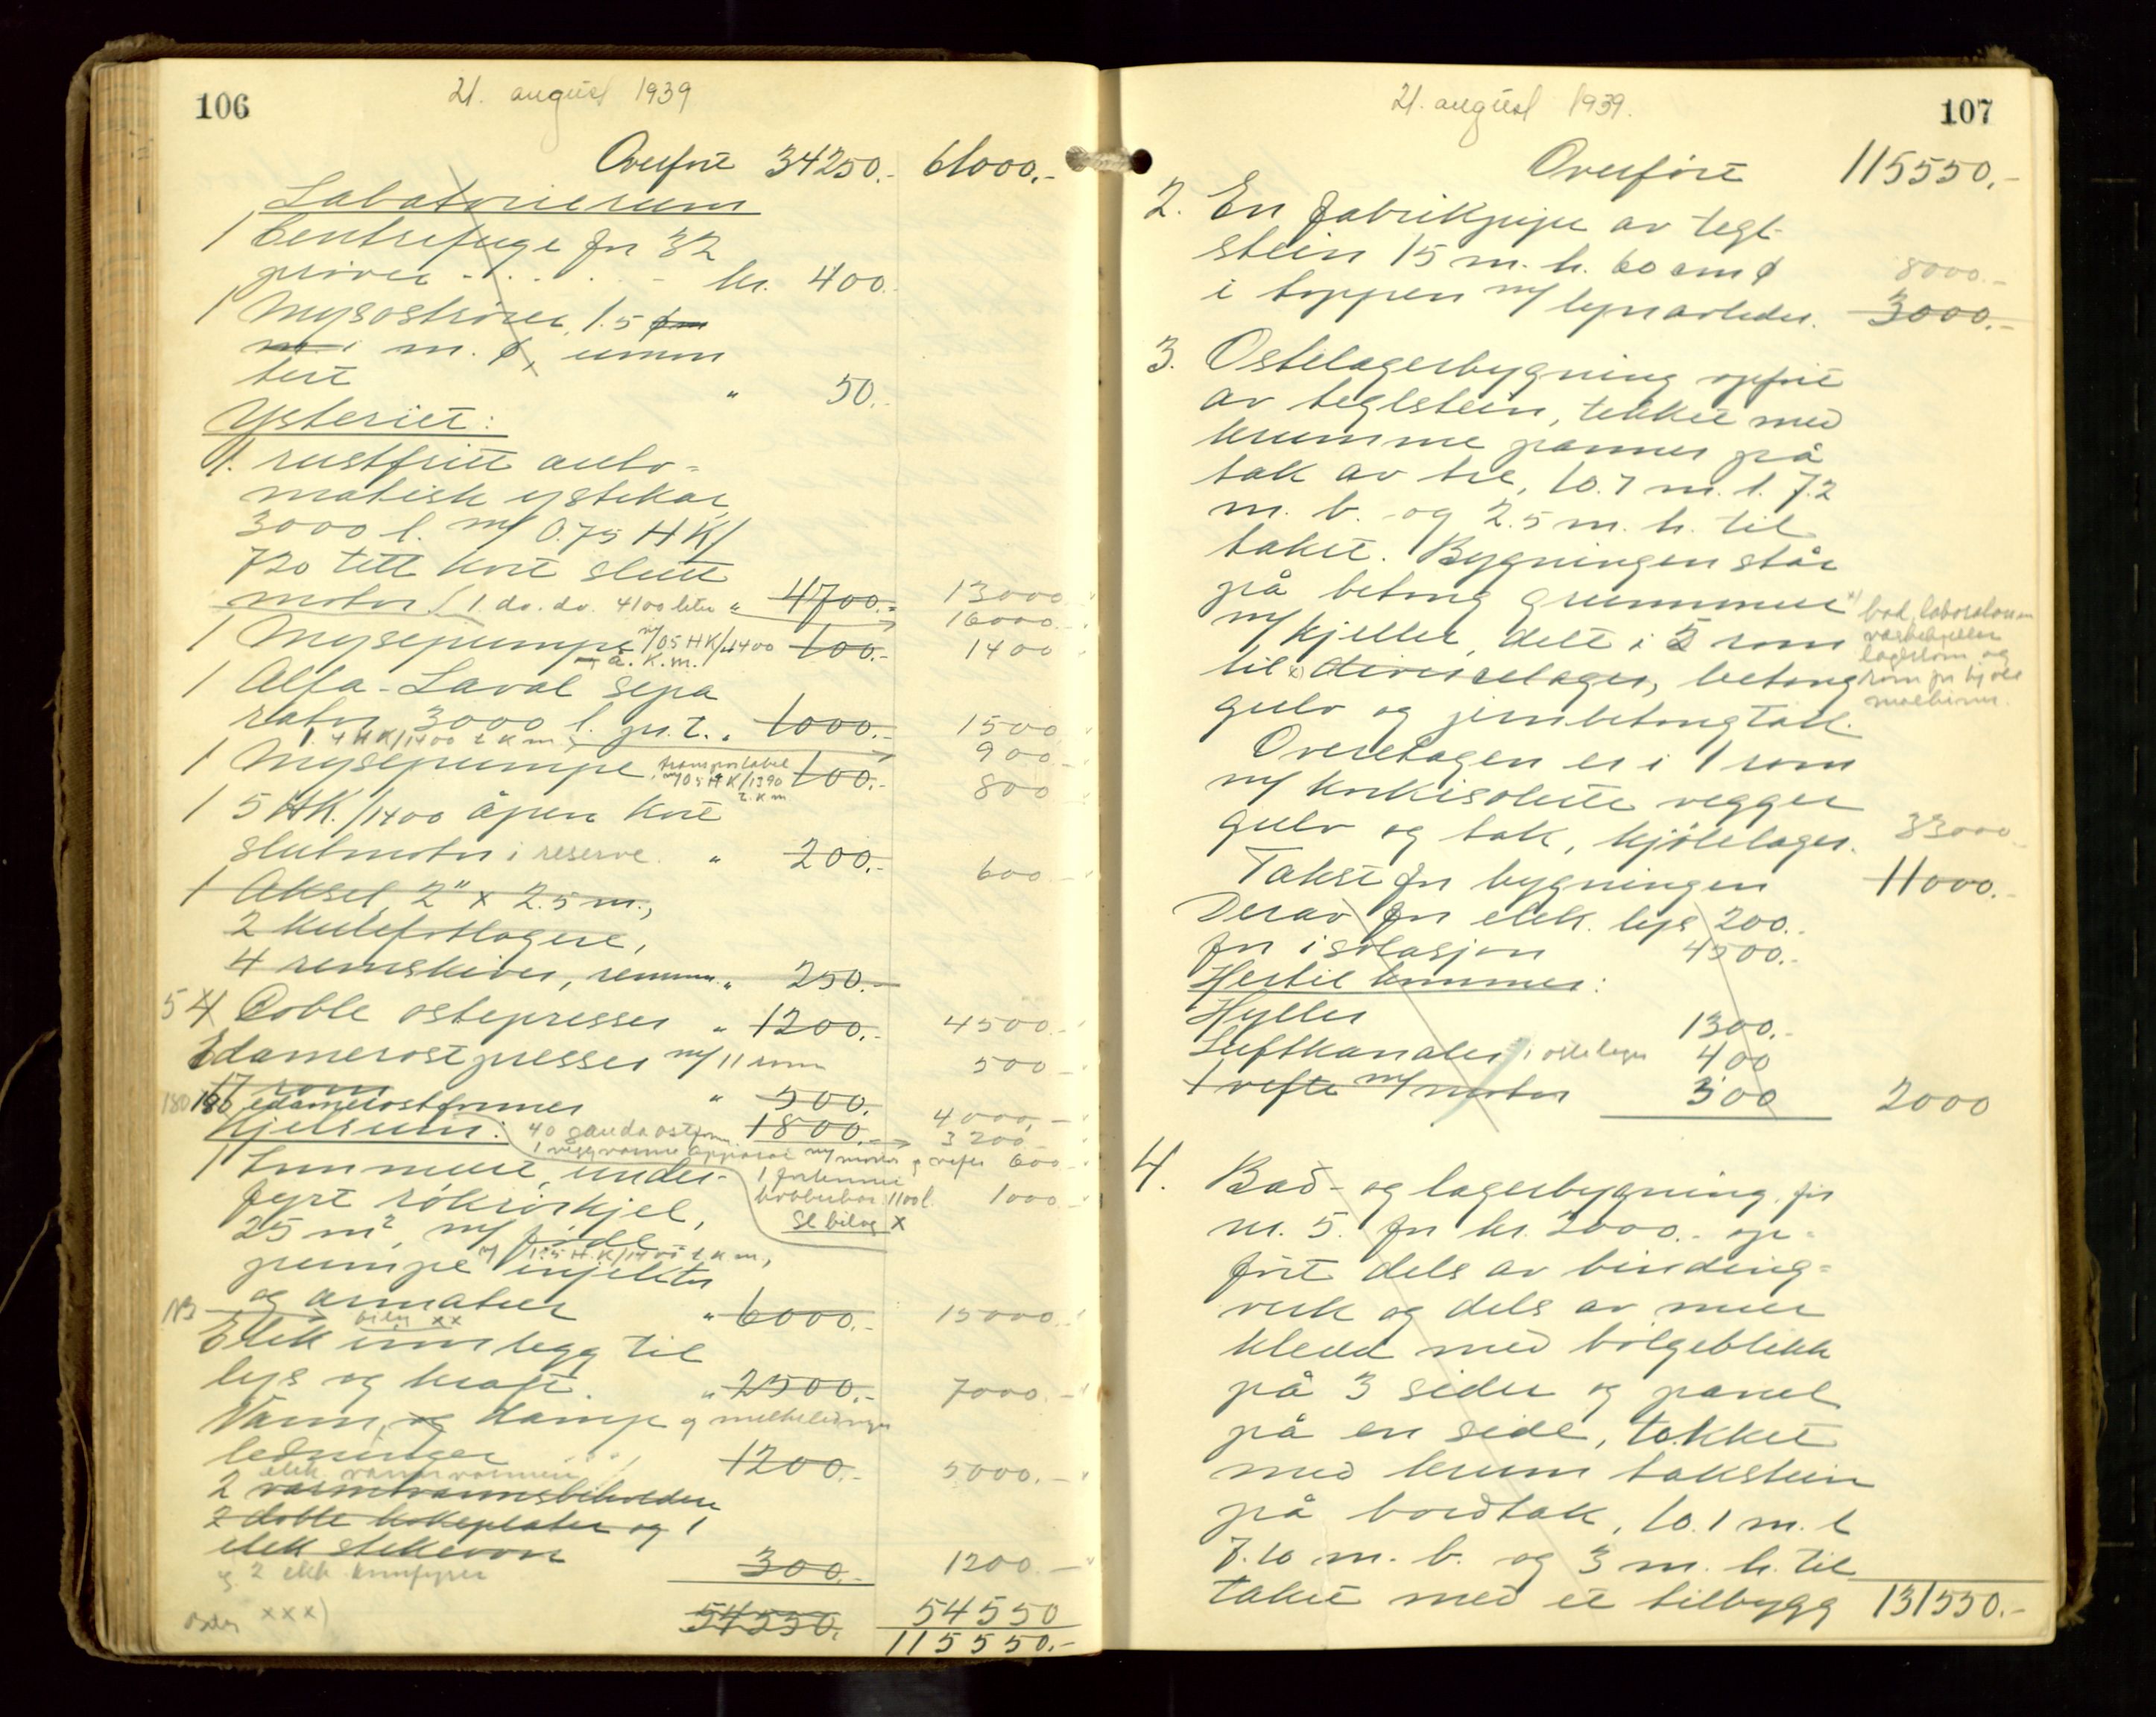 106
21. august 1939
Overført 34250.- 61000.-
Labatorierum
1 Centrifuge for 32
prøver - . . . . - kr. 400.
1 Mysostrører, 1.5
m. i m. ϕ, umon
tert " 50.-
Ysteriet:
1. rustfritt auto-
matisk ystekar
3000 l. m/ 0.75 HK/
720 tett kort slutt
motor (1 do. do. 4100 liter " 4700.- 13000
16000.-
1 Mysepumpe m/ 05 HK/1400 100.- 1400
a. K.m.
1 Alfa-Laval sepa
rator 3000 l. pr. t. " 1000.- 1500
1. 4 HK/1400 t K m. 900.-
1 Mysepumpe transportabel 100.- 800
m/05 HK/1390
t. K m
1 5 HK./1400 åpen kort
slutmotor i reserve. " 200.- 600.-
1 Aksel, 2" x 2.5 m.,
2 kulefotlagere,
4 remskiver, remmer. " 250.-
5 4 Doble ostepresser " 1200.- 4500.-
Edamerostpresser m/ 11 rom 500.-
17 rom " 500.
180 180 edamerostformer 1800.- 4000.-
Kjelrum: 40 gaudaostform. 3200.-
1 veggvarme apparat m/ motor og vefte 600.-
1 Innmuret, under- 1 fortinnet
fyrt rökrörkjel, kobberkar 1100 l. 1000.-
25 m², m/ føde Se bilag x
pumpe m/ 1.5 H.K/1400 t.K m,
injektor
og armatur " 6000.- 15000.-
NB bilag xx
Elek innlegg til
lys og kraft. " 2500.- 7000.-
Vann, og damp og melkeledninger
ledninger 1200.- 5000.-
elek. vannvarmere
2 varmtvannsbeholdere
2 doble kokeplater og 1
elek stekeovn 300.- 1200.-
g. 2 elek. komfyrer
xxx)
54550. 54550
115550.-
107
21. august 1939.
Overført 115550.-
2. En fabrikpipe av tegl-
stein 15 m. h. 60 cm ϕ 8000.-
i toppen m/ lynavleder. 3000.-
3. Ostelagerbygning opført
av teglstein, tekket med
krumme panner på
tak av tre, 10.7 m. l. 7.2
m. b. og 2.5 m. h. til
taket. Bygningen står
på betong grunnmur x) bad, laboratorium
m/ kjeller, delt i 5 rom vaskekjeller
til x) diverselager, betong lagerrom og
rom for kjøle
maskiner.
gulv og jernbetongtak.
Overetagen er i 1 rom
m/ korkisolerte vegger
gulv og tak, kjölelager. 33000
Takst for bygningen 11000.-
Derav for elek. lys 200.-
for isolasjon 4500.-
Hertil kommer:
Hyller 1300.-
Luftkanaler i ostelager 400
1 vefte m/ motor 300 2000
4. Bad- og lagerbygning, för
nr. 5. for kr. 2000.- op-
fört dels av binding-
verk og dels av mur
kledd med bölgeblikk
på 3 sider og panel
på en side, tekket
med krum takstein
på bordtak, 10.1 m. l
7.10 m. b. og 3 m. h. til
taket med et tilbygg 131550.-